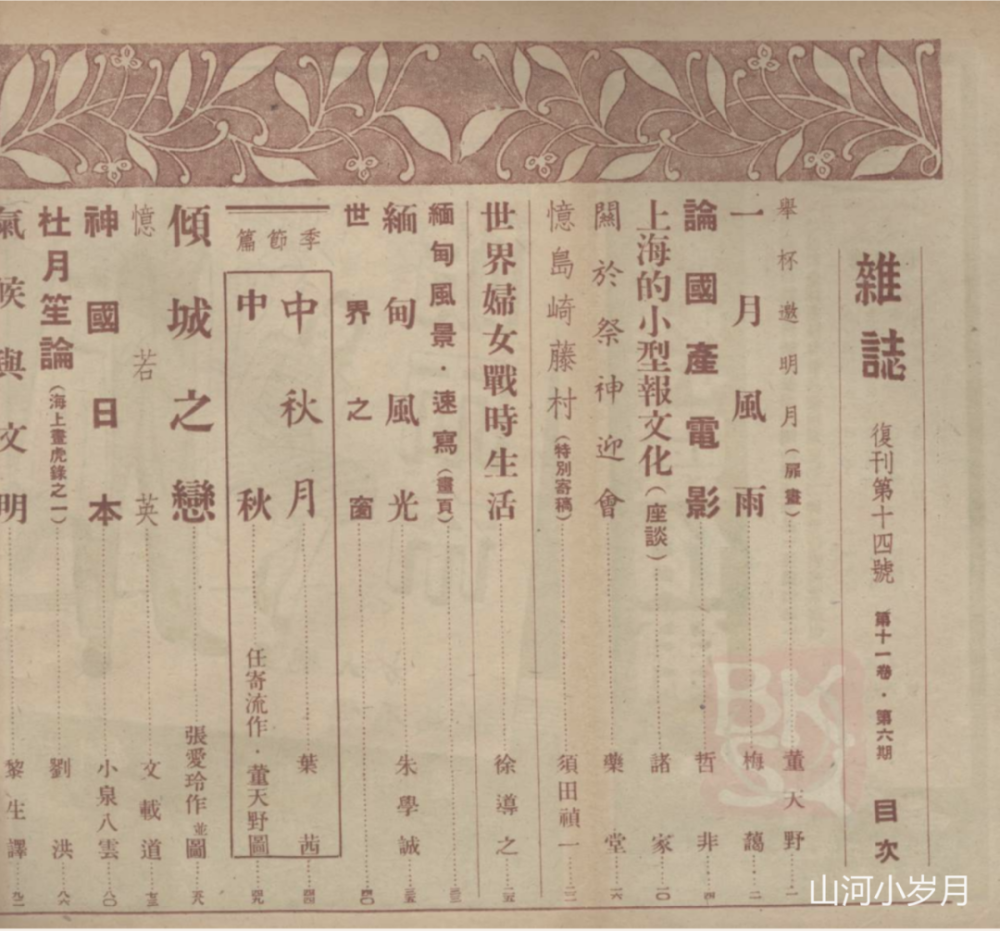 雜誌 復刊第十四號 第十一卷・第六期 目次
舉杯邀明月(扉畫)……董天野……一
一月風雨……梅藹……二
論國產電影……哲非……四
上海的小型報文化(座談)……諸家……一〇
關於祭神迎會……藥堂……一六
憶島崎藤村(特別寄稿)……須田禎一……二一
世界婦女戰時生活……徐導之……二五
緬甸風景・速寫(畫頁)
緬甸風光……朱學誠……三五
世界之窗……四〇
季節篇
中秋月……葉茜……四四
中秋……任寄流作・董天野圖……四九
傾城之戀……張愛玲作並圖……五九
憶若英……文載道……七五
神國日本……小泉八雲……八〇
杜月笙論(海上畫虎錄之一)……劉洪……八六
氣候與文明……黎生譯……九二
BK
山河小岁月